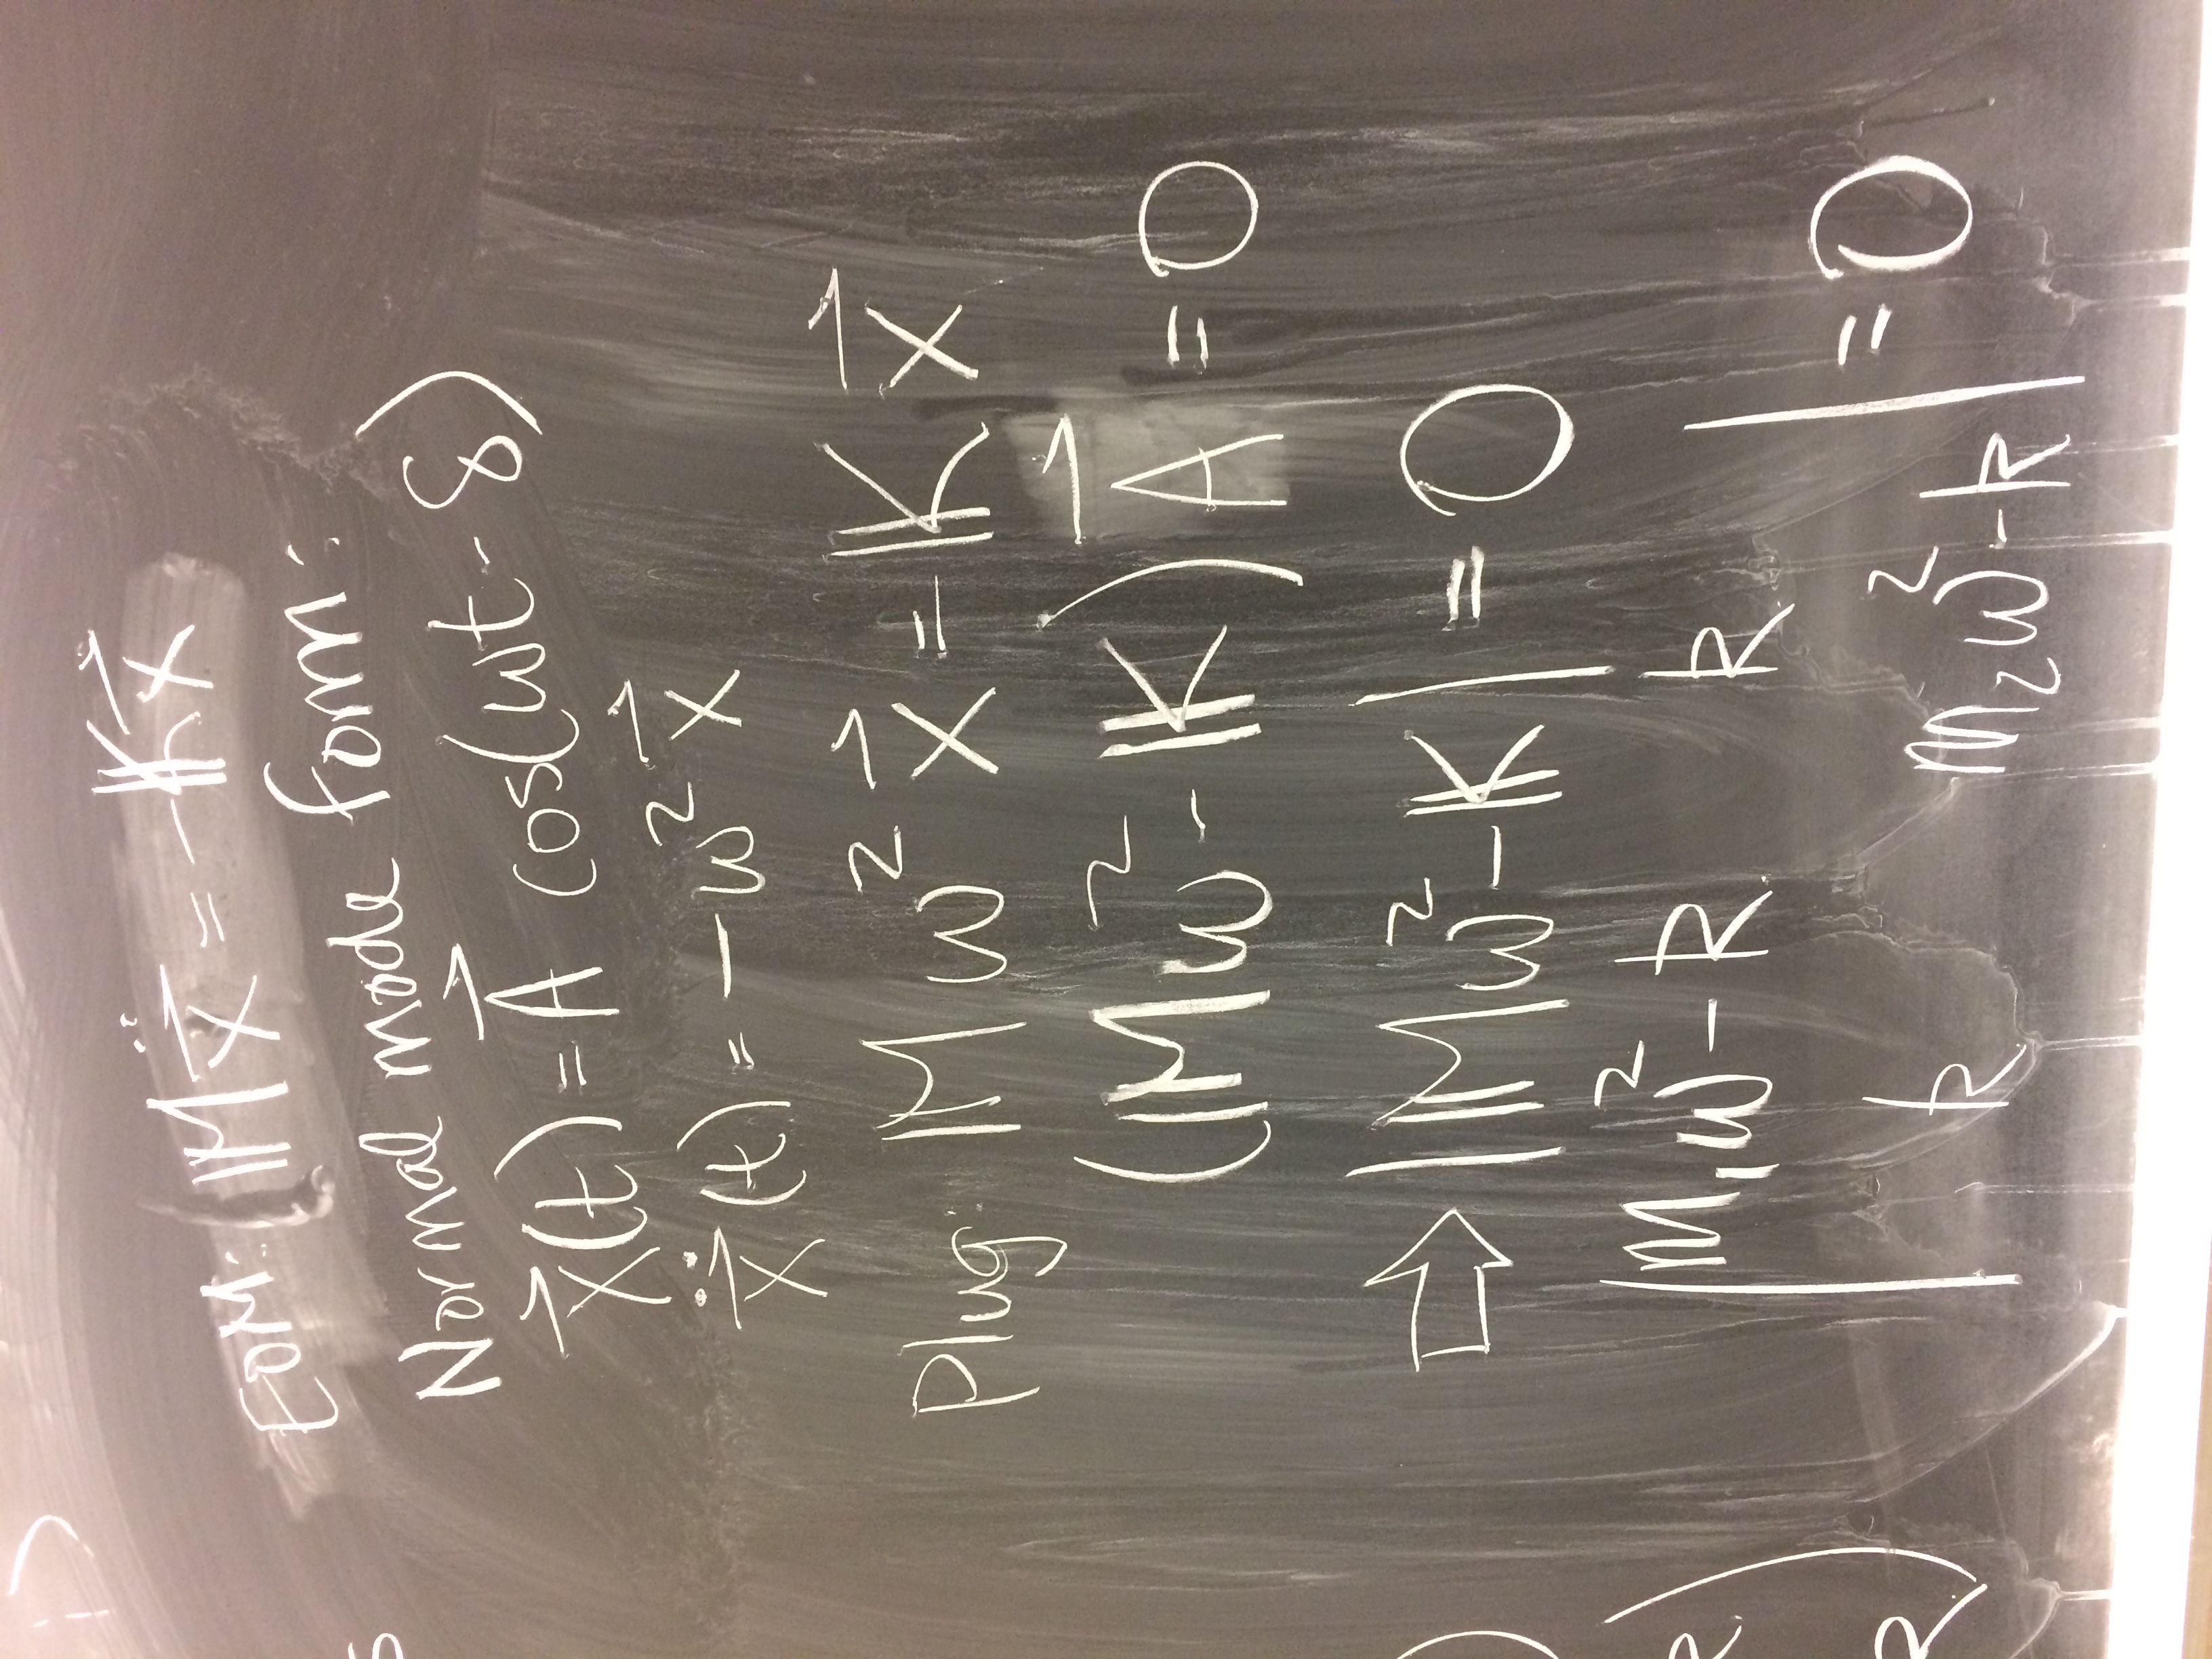 EoM: 𝕄ẍ⃗ = -𝕂x⃗
Normal mode form:
x⃗(t) = A⃗ cos(ωt - δ)
ẍ⃗(t) = -ω²x⃗
Plug: 𝕄ω²x⃗ = -𝕂x⃗
(𝕄ω² - 𝕂)A⃗ = 0
⇒ |𝕄ω² - 𝕂| = 0
| m₁ω² - k   k |
| k   m₂ω² - k | = 0